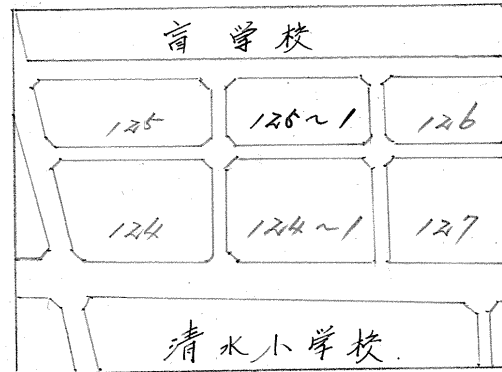 盲学校
125 125~1 126
124 124~1 127
清水小学校